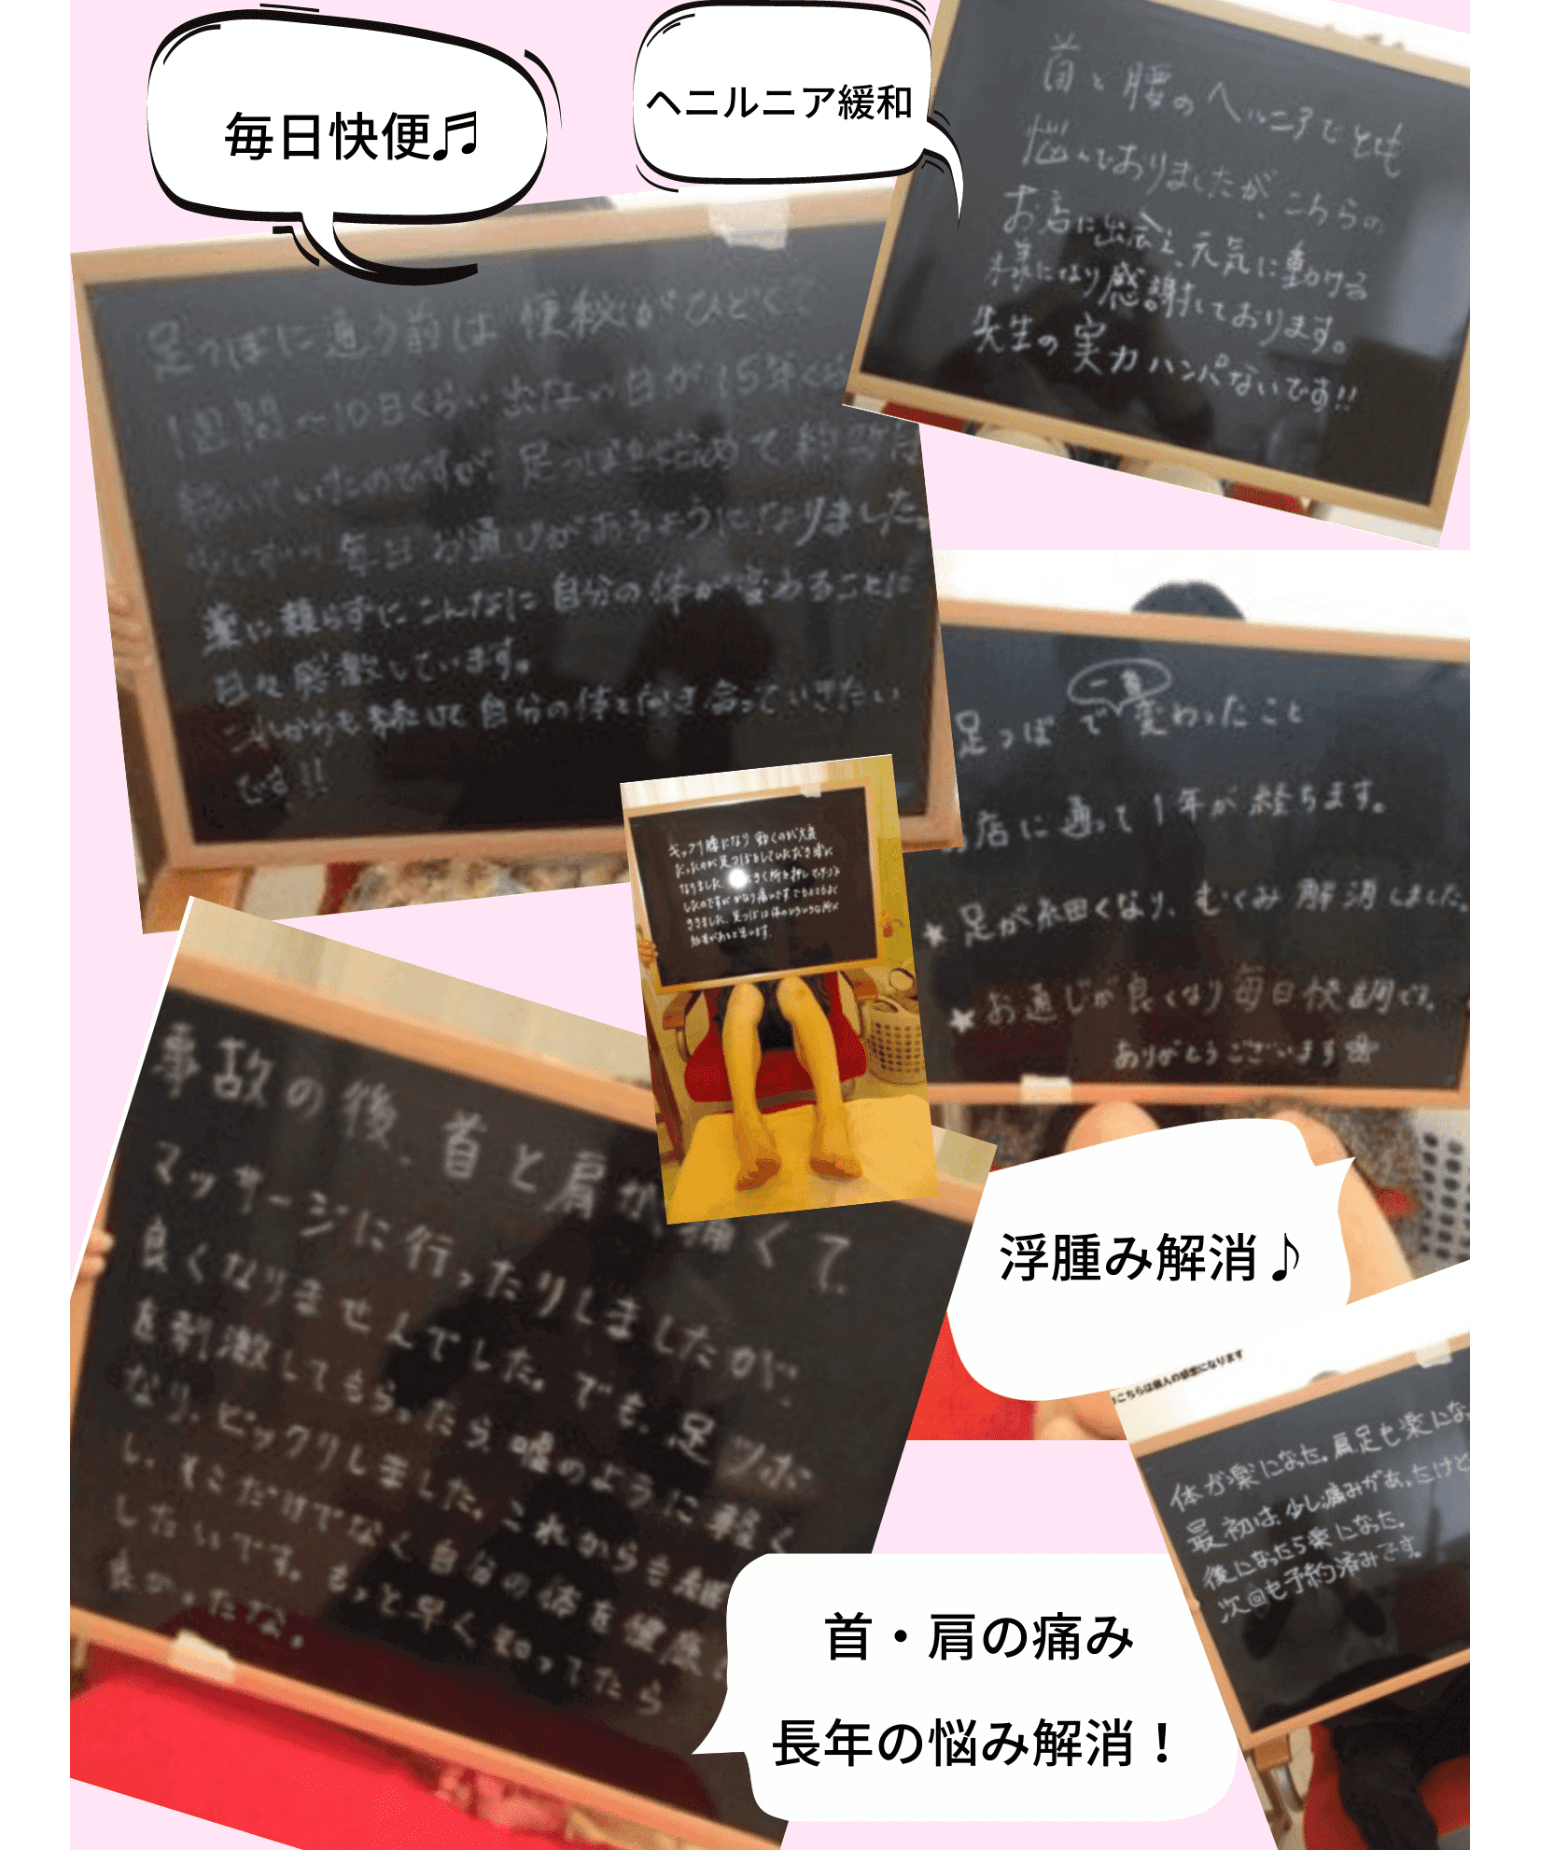 毎日快便♬
ヘニルニア緩和
首と腰のヘルニアでとても
悩んでおりましたが、こちらの
お店に出会え、元気に動ける
様になり感謝しております。
先生の実力ハンパないです!!
足つぼに通う前は便秘がひどくて
1週間〜10日くらい出ない日が15年くらい
続いていたのですが、足つぼを始めて
少しずつ毎日お通じがあるようになりました。
薬に頼らずにこんなに自分の体が変わることに
日々感激しています。
これからも継続して自分の体と向き合っていきたい
です!!
足つぼで一番変わったこと
お店に通って1年が経ちます。
★足が細くなり、むくみ解消しました。
★お通じが良くなり毎日快調です。
ありがとうございます
ギックリ腰になり動くのが大変
だったのが足つぼをしていただき楽に
なりました。きく所を押して
したのですがかなり痛いですでもとてもよく
ききました。足つぼは体のいろいろな所に
効果があると思います。
浮腫み解消♪
事故の後、首と肩が痛くて、
マッサージに行ったりしましたが、
良くなりませんでした。でも、足ツボ
を刺激してもらったら嘘のように軽く
なり、ビックリしました。これからも
し、そこだけでなく自分の体を健康に
したいです。もっと早く知ってたら
良かったな。
こちらは個人の感想になります
体が楽になった。肩足も楽にな
最初は、少し痛みがあったけど
後になったら楽になった。
次回も予約済みです。
首・肩の痛み
長年の悩み解消！